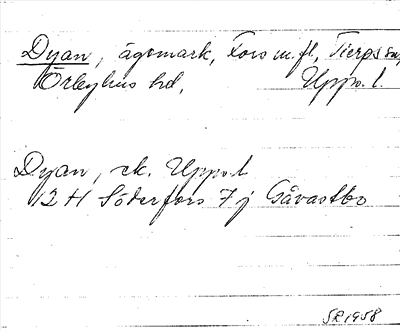 Dyan, ägomark, Tors m.fl, Tierps sn,
Örbyhus hd, Upps. l.
Dyan, ek. Upps. l
12 H Söderfors 7 j Gåvastbo
SR 1958